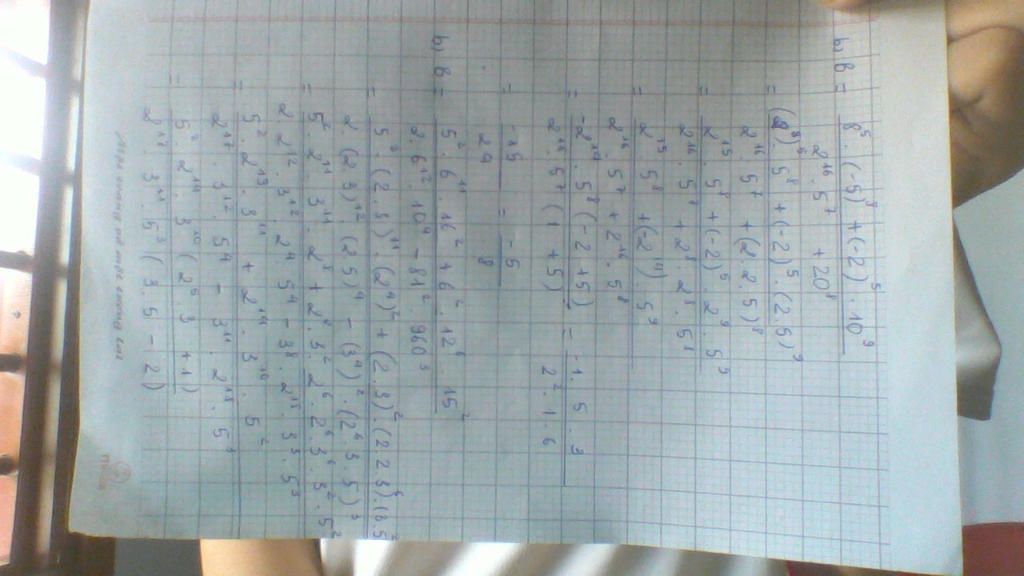 b) B = 8^5 . (-5)^8 + (-2)^5 . 10^9
2^16 . 5^7 + 20^8
= (2^3)^5 . 5^8 + (-2)^5 . (2.5)^9
2^16 . 5^7 + (2.2.5)^8
= 2^15 . 5^8 + (-2)^5 . 2^9 . 5^9
2^16 . 5^7 + 2^8 . 2^8 . 5^8
= 2^15 . 5^8 + (2^14) 5^9
2^16 . 5^7 + 2^16 . 5^8
= -2^14 . 5^8 (-2 + 5) = -1 . 5 . 3
2^16 . 5^7 (1 + 5) 2^2 . 1 . 6
= -15 = -5
24 8
b) B = 5^2 . 6^11 . 16^2 + 6^2 . 12^6 . 15^2
2 . 6^12 . 10^4 - 81^2 . 960^3
= 5^2 . (2.3)^11 . (2^4)^2 + (2.3)^2 . (2 2 3)^6 . (3.5)^2
2 . (2.3)^12 . (2 5)^4 - (3^4)^2 . (2^6 . 3 . 5)^3
= 5^2 . 2^11 . 3^11 . 2^8 + 2^2 . 3^2 . 2^6 . 2^6 3^6 . 3^2 . 5^2
2 2^12 . 3^12 . 2^4 5^4 - 3^8 . 2^18 . 3^3 . 5^3
= 5^2 . 2^19 . 3^11 + 2^14 . 3^10 . 5^2
2^17 . 3^12 . 5^4 - 3^11 . 2^18 . 5^3
= 5^2 . 2^14 . 3^10 (2^5 . 3 + 1)
2^17 . 3^11 . 5^3 (3 . 5 - 2)